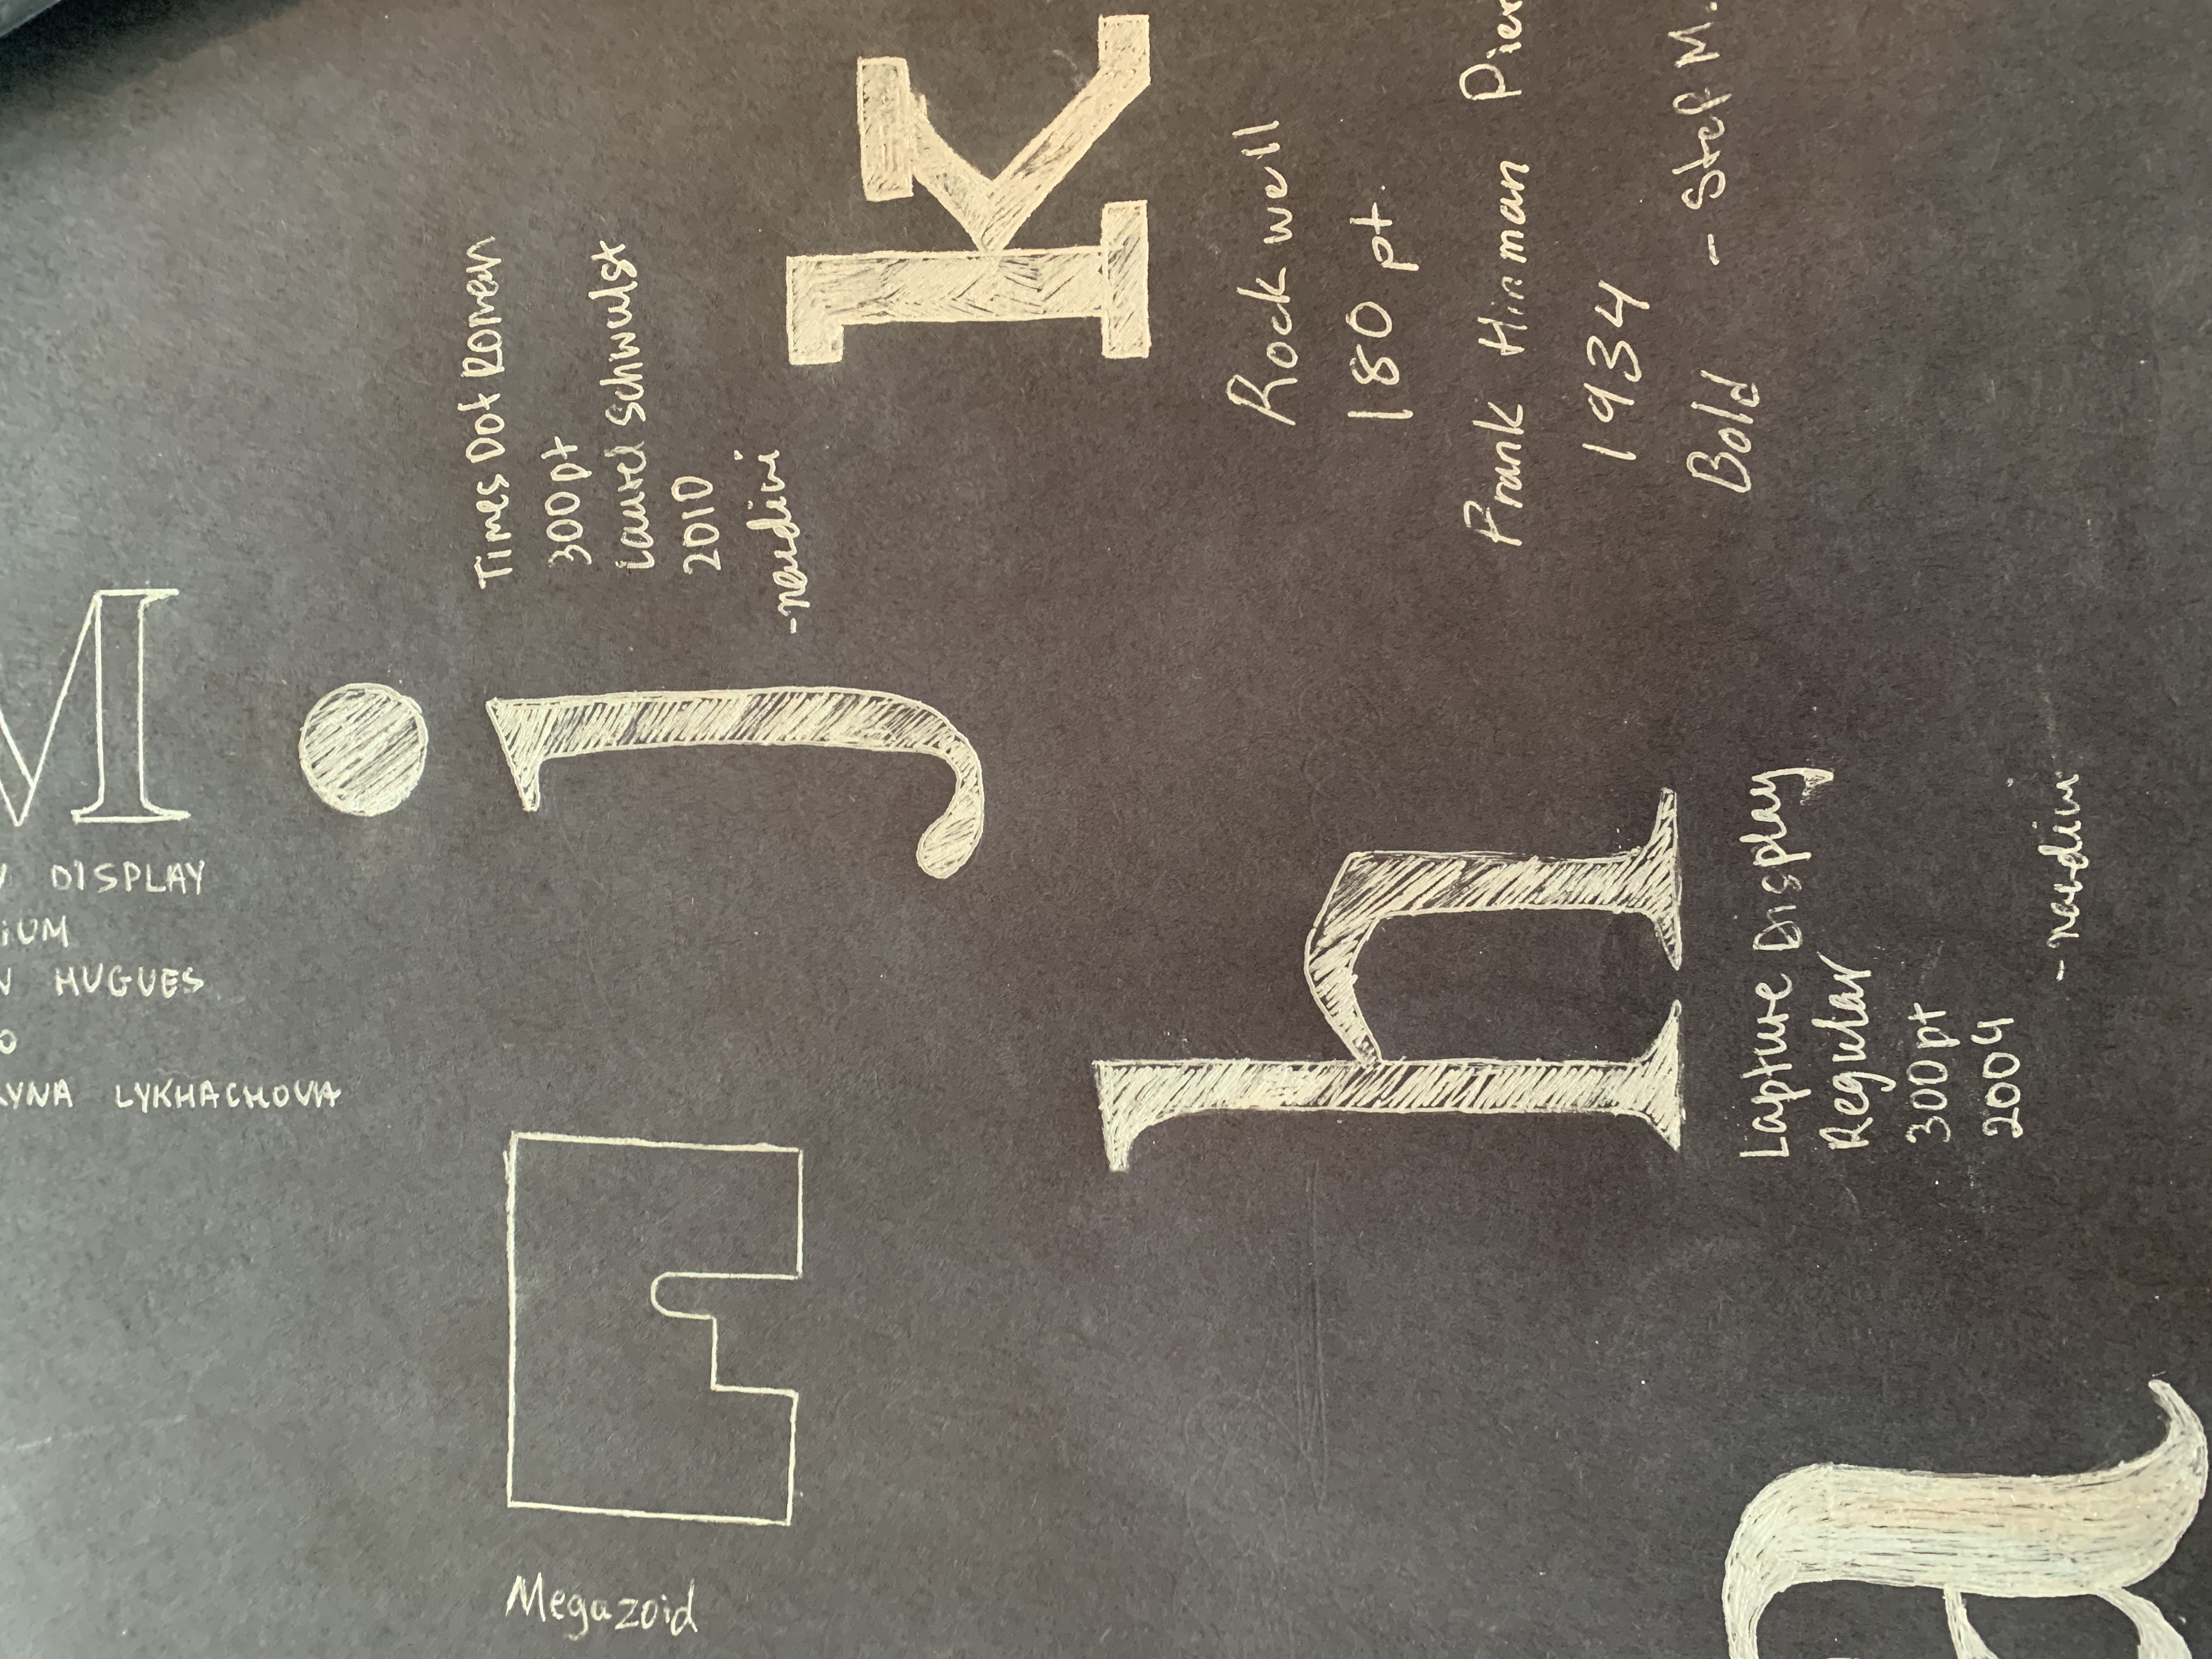 M
DISPLAY
HUGUES
LYKHACHOVA
j
Times Dot Roman
300pt
Laurel Schwulst
2010
-nandini
k
Rockwell
180 pt.
Frank Hinman
1934
Bold - Stef M.
E
Megazoid
h
Lapture Display
Regular
300pt
2004
-nandini
a